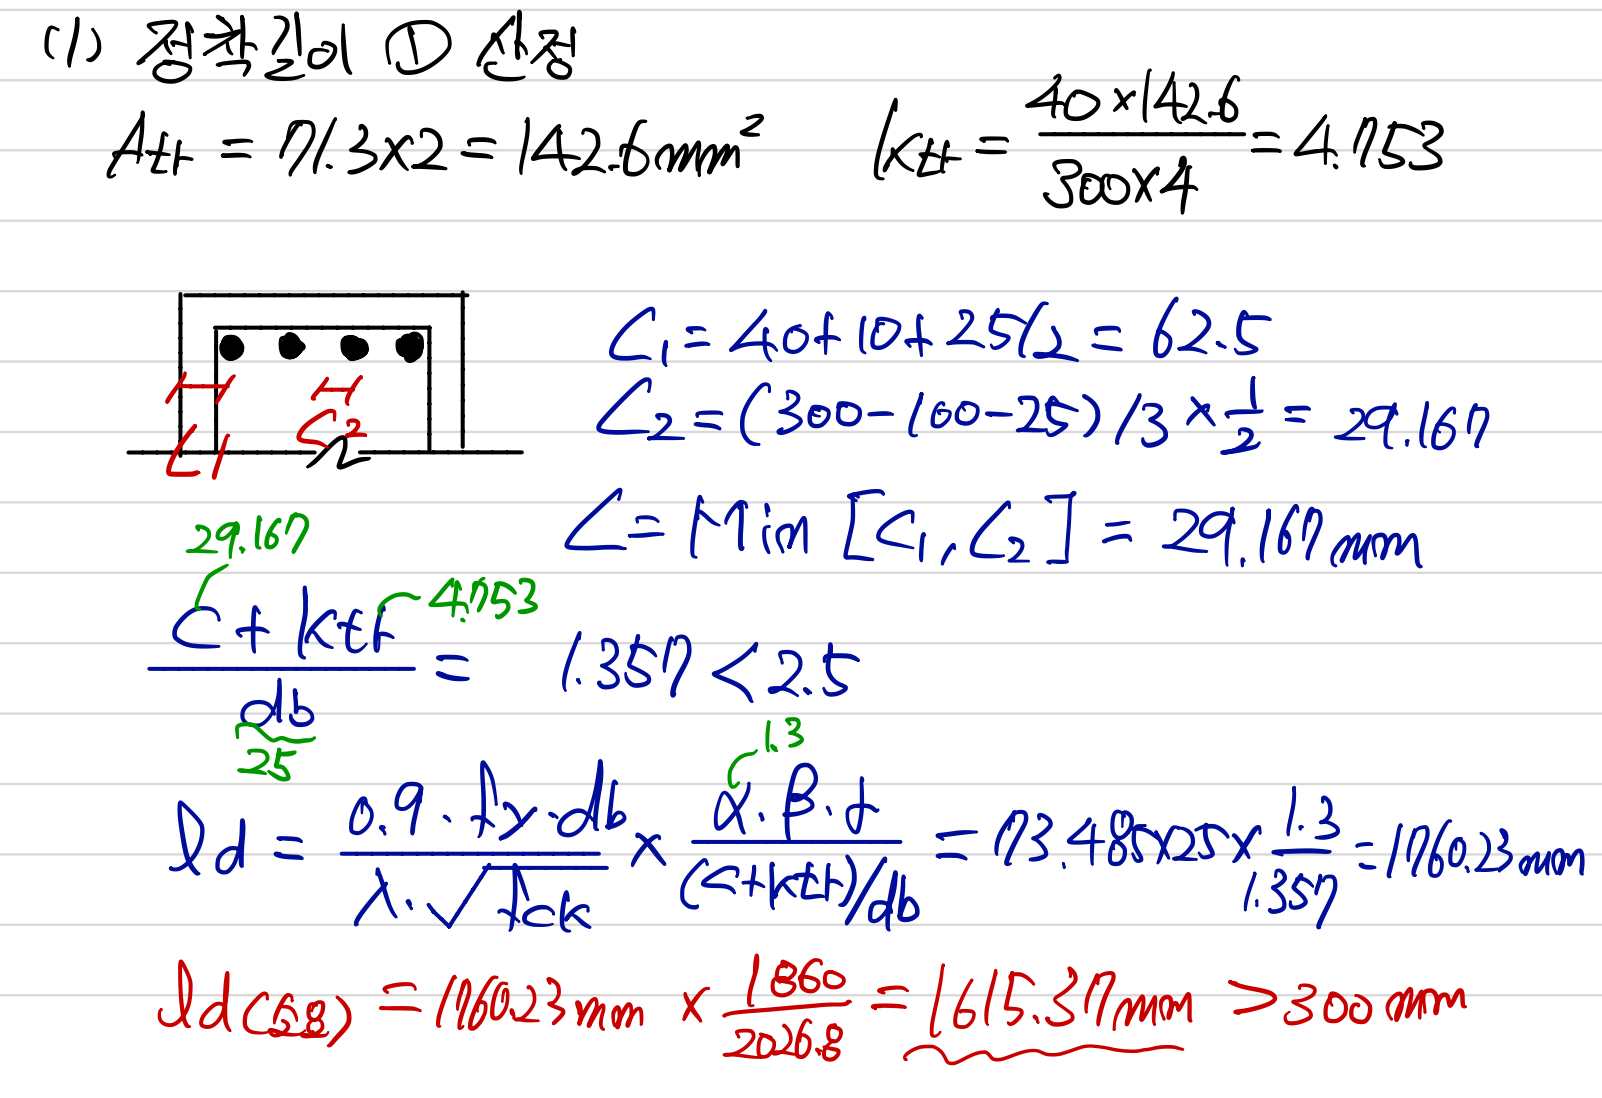 (1) 정착길이 ① 산정
Atr = 71.3×2 = 142.6mm² ktr = 40×142.6 / 300×4 = 4.753
C₁ = 40+10+25/2 = 62.5
C₂ = (300-100-25)/3 × 1/2 = 29.167
C₁ C₂
C = Min [C₁, C₂] = 29.167mm
29.167
4.753
C + ktr / db = 1.357 < 2.5
25
1.3
ld = 0.9·fy·db / λ·√fck × α·β·γ / (c+ktr)/db = 73.485×25× 1.3 / 1.357 = 1760.23mm
ld(소요) = 1760.23mm × 1860 / 2026.8 = 1615.37mm > 300mm